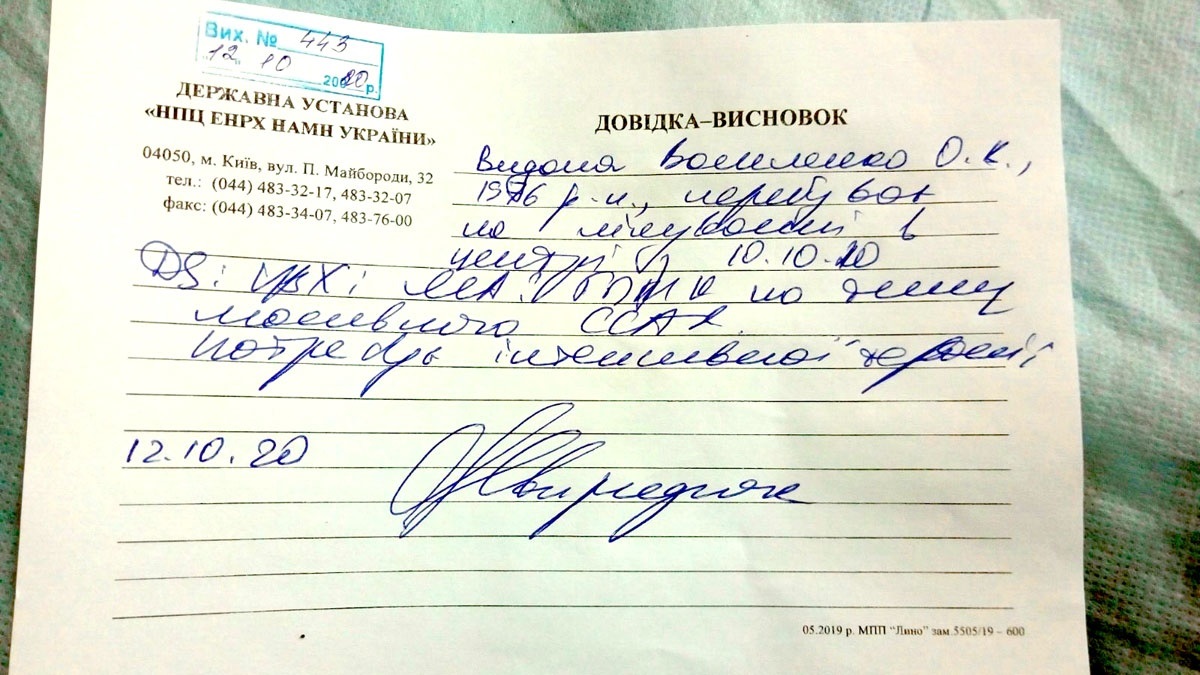 Вих. № 443
"12" 10 2020 р.
ДЕРЖАВНА УСТАНОВА
«НПЦ ЕНРХ НАМН УКРАЇНИ»
04050, м. Київ, вул. П. Майбороди, 32
тел.: (044) 483-32-17, 483-32-07
факс: (044) 483-34-07, 483-76-00
ДОВІДКА–ВИСНОВОК
Видана Василенко О.К.,
1976 р.н., перебував
на лікуванні в
центрі з 10.10.20
DS: ЦВХ: на тлі
масивного САК.
потребує інтенсивної терапії
12.10.20
05.2019 р. МПП “Лино” зам.5505/19 – 600